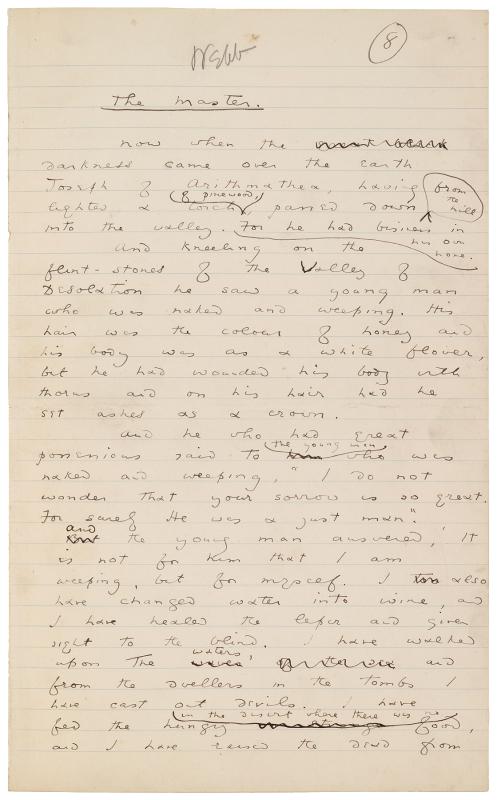 Webb
8
The Master.
Now when the
darkness came over the Earth
Joseph of Arithmathea, having from the hill
of pinewood,
lighted a torch passed down
into the valley. For he had business in his own home.
And kneeling on the
flint-stones of the Valley of
Desolation he saw a young man
who was naked and weeping. His
hair was the colour of honey and
his body was as a white flower,
but he had wounded his body with
thorns and on his hair had he
set ashes as a crown.
And he who had great
the young man
possessions said to him who was
naked and weeping, "I do not
wonder that your sorrow is so great.
For surely He was a just man".
and
But the young man answered, It
is not for him that I am
weeping, but for myself. I too also
have changed water into wine, and
I have healed the leper and given
sight to the blind. I have walked
waters,
upon The waves of the sea and
from the dwellers in the tombs I
have cast out devils. I have
in the desert where there was no
fed the hungry food,
and I have raised the dead from